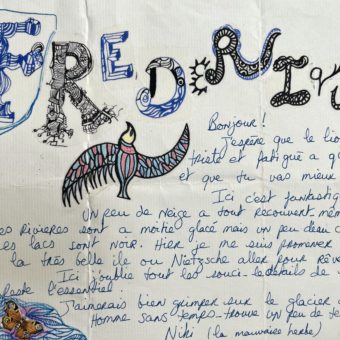 FREDERIQU
Bonjour!
J'espère que le lio
triste et fatigué a qu
et que tu vas mieux
Ici c'est fantastiqu
Un peu de neige a tout recouvert mêm
es rivieres sont a moitie glacé mais un peu d'eau c
es lacs sont noir. Hier je me suis promener
la très belle ile ou Nietzsche aller pour rêve
Ici j'oublie tout les souci-les details de
Reste l'essentiel.
J'aimerais bien grimper sur le glacier a
Homme sans temps-trouve un peu de te
Niki (la mauvaise herbe)